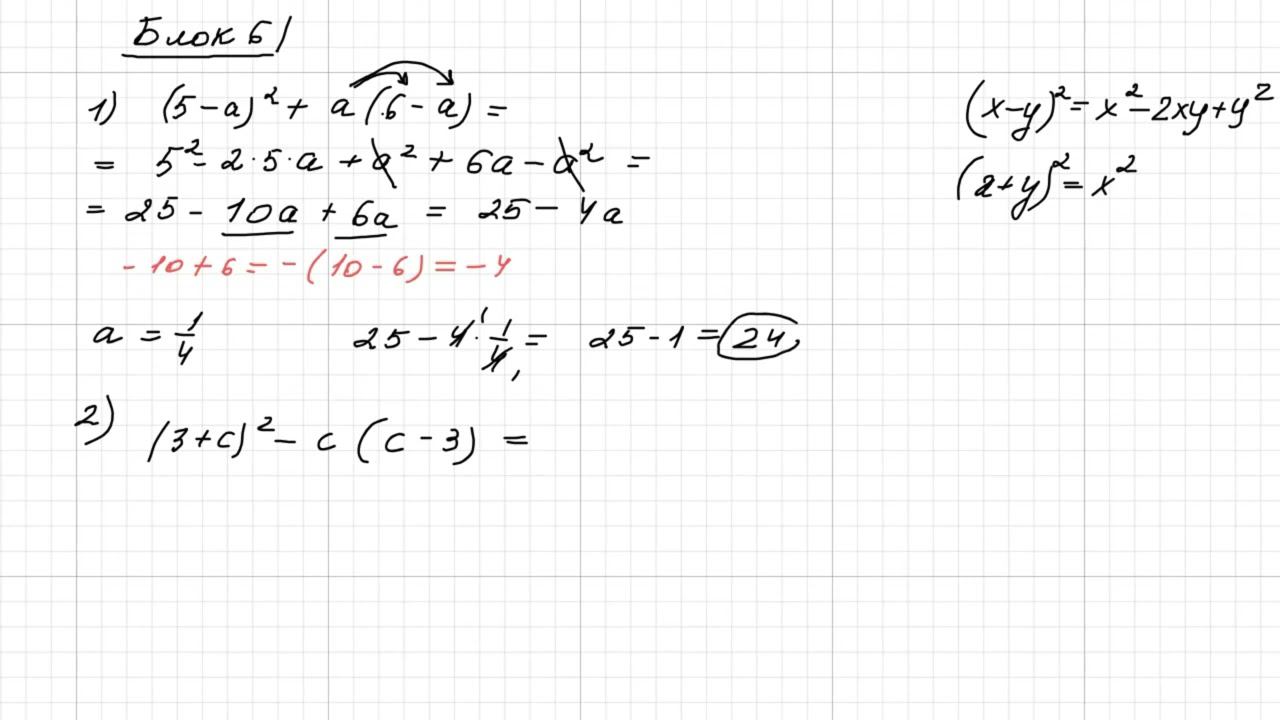 Блок 6/
1) (5-a)² + a(6-a) =
= 5² - 2·5·a + a² + 6a - a² =
= 25 - 10a + 6a = 25 - 4a
-10+6 = -(10-6) = -4
a = 1/4 25 - 4·1/4 = 25-1 = 24
2) (3+c)² - c(c-3) =
(x-y)² = x² - 2xy + y²
(x+y)² = x²